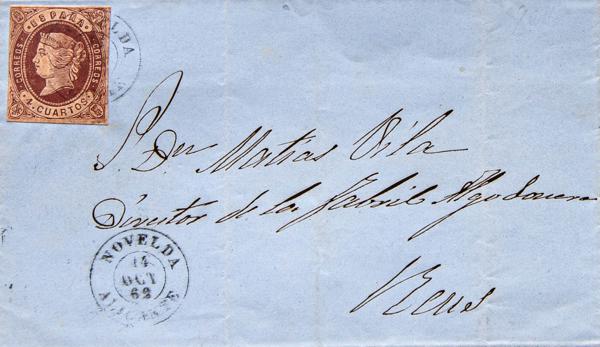 ESPAÑA
CORREOS CORREOS
4 CUARTOS
S. Dn Matias Vila
Director de la Fabril Algodonera
Reus
NOVELDA
14
OCT
62
ALICANTE